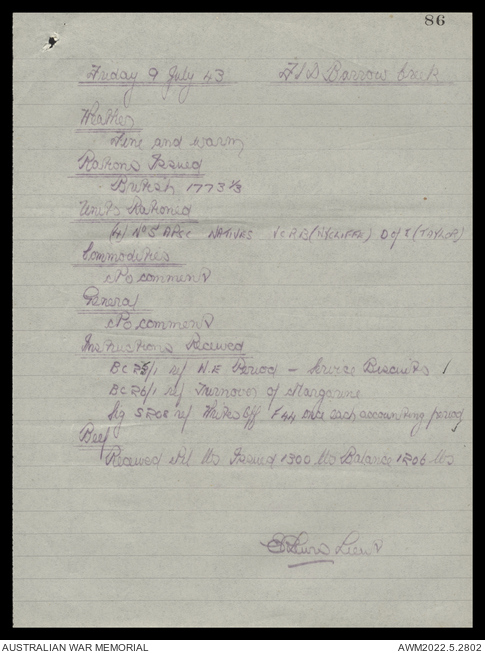 86
Friday 9 July 43 FSD Barrow Creek
Weather
Fine and warm
Rations Issued
British 1773 1/3
Units Rationed
(4) No 5 APSC NATIVES D of T (TAYLOR)
Commodities
No comment
General
No comment
Instructions Received
BC 25/1 r/ N.E. Period - Service Biscuits
BC 26/1 r/ Turnover of Margarine
Sig S208 r/ Writes Off F44 once each accounting period
Beef
Received Nil lbs Issued 1300 lbs Balance 1206 lbs
Lieut
AUSTRALIAN WAR MEMORIAL
AWM2022.5.2802